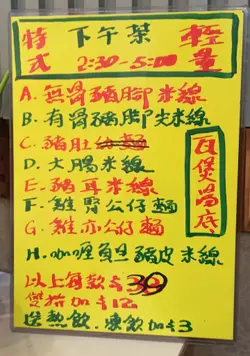 特式 下午茶 輕量
2:30-5:00
A. 無骨豬腳米線
B. 有骨豬腳尖米線
C. 豬肚
D. 大腸米線
E. 豬耳米線
F. 雞腎公仔麵
G. 雞亦公仔麵
H. 咖喱魚旦豬皮米線
瓦煲湯底
以上每款$39
雙拼加$12
送熱飲．凍飲加$3